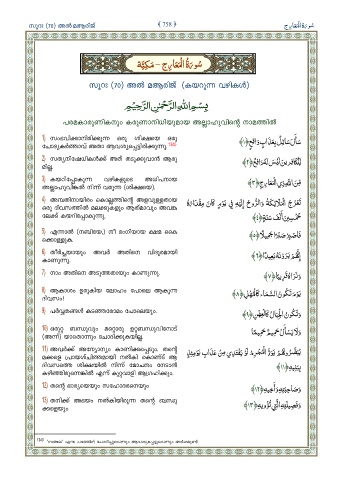 സൂറഃ (70) അൽ മആരിജ് ﴾ 758 ﴿ سُورَةُ الْمَعَارِجِ
سُورَةُ الْمَعَارِجِ - مَكِّيَّة
സൂറഃ (70) അൽ മആരിജ് (കയറുന്ന വഴികൾ)
بِسْمِ اللَّهِ الرَّحْمَٰنِ الرَّحِيمِ
പരമകാരുണികനും കരുണാനിധിയുമായ അല്ലാഹുവിന്റെ നാമത്തിൽ
1) സംഭവിക്കാനിരിക്കുന്ന ഒരു ശിക്ഷയെ ഒരു
ചോദ്യകർത്താവ് അതാ ആവശ്യപ്പെട്ടിരിക്കുന്നു.
سَأَلَ سَائِلٌ بِعَذَابٍ وَاقِعٍ ﴿١﴾
2) സത്യനിഷേധികൾക്ക് അത് തടുക്കുവാൻ ആരു
മില്ല.
لِلْكَافِرِينَ لَيْسَ لَهُ دَافِعٌ ﴿٢﴾
3) കയറിപ്പോകുന്ന വഴികളുടെ അധിപനായ
അല്ലാഹുവിങ്കൽ നിന്ന് വരുന്ന (ശിക്ഷയെ).
مِنَ اللَّهِ ذِي الْمَعَارِجِ ﴿٣﴾
4) അമ്പതിനായിരം കൊല്ലത്തിന്റെ അളവുള്ളതായ
ഒരു ദിവസത്തിൽ മലക്കുകളും ആത്മാവും അവങ്ക
ലേക്ക് കയറിപ്പോകുന്നു.
تَعْرُجُ الْمَلَائِكَةُ وَالرُّوحُ إِلَيْهِ فِي يَوْمٍ كَانَ مِقْدَارُهُ
خَمْسِينَ أَلْفَ سَنَةٍ ﴿٤﴾
5) എന്നാൽ (നബിയേ,) നീ ഭംഗിയായ ക്ഷമ കൈ
ക്കൊള്ളുക.
فَاصْبِرْ صَبْرًا جَمِيلًا ﴿٥﴾
6) തീർച്ചയായും അവർ അതിനെ വിദൂരമായി
കാണുന്നു.
إِنَّهُمْ يَرَوْنَهُ بَعِيدًا ﴿٦﴾
7) നാം അതിനെ അടുത്തതായും കാണുന്നു.
وَنَرَاهُ قَرِيبًا ﴿٧﴾
8) ആകാശം ഉരുകിയ ലോഹം പോലെ ആകുന്ന
ദിവസം!
يَوْمَ تَكُونُ السَّمَاءُ كَالْمُهْلِ ﴿٨﴾
9) പർവ്വതങ്ങൾ കടഞ്ഞരോമം പോലെയും.
وَتَكُونُ الْجِبَالُ كَالْعِهْنِ ﴿٩﴾
10) ഒരുറ്റ ബന്ധുവും മറ്റൊരു ഉറ്റബന്ധുവിനോട്
(അന്ന്) യാതൊന്നും ചോദിക്കുകയില്ല.
وَلَا يَسْأَلُ حَمِيمٌ حَمِيمًا
11) അവർക്ക് അന്യോന്യം കാണിക്കപ്പെടും. തന്റെ
മക്കളെ പ്രായശ്ചിത്തമായി നൽകി കൊണ്ട് ആ
ദിവസത്തെ ശിക്ഷയിൽ നിന്ന് മോചനം നേടാൻ
കഴിഞ്ഞിരുന്നെങ്കിൽ എന്ന് കുറ്റവാളി ആഗ്രഹിക്കും.
يُبَصَّرُونَهُمْ يَوَدُّ الْمُجْرِمُ لَوْ يَفْتَدِي مِنْ عَذَابِ يَوْمِئِذٍ
بِبَنِيهِ ﴿١١﴾
12) തന്റെ ഭാര്യയെയും സഹോദരനെയും
وَصَاحِبَتِهِ وَأَخِيهِ ﴿١٢﴾
13) തനിക്ക് അഭയം നൽകിയിരുന്ന തന്റെ ബന്ധു
ക്കളെയും
وَفَصِيلَتِهِ الَّتِي تُؤْوِيهِ ﴿١٣﴾